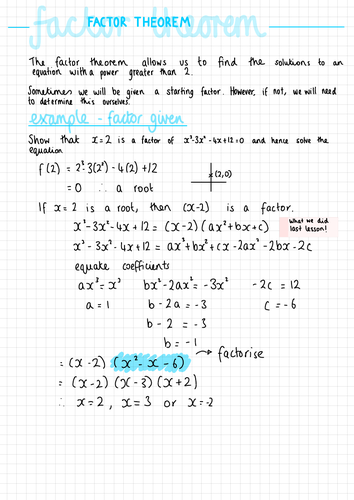 factor theorem
FACTOR THEOREM
The factor theorem allows us to find the solutions to an
equation with a power greater than 2.
Sometimes we will be given a starting factor. However, if not, we will need
to determine this ourselves.
example - factor given
Show that x=2 is a factor of x³-3x²-4x+12=0 and hence solve the
equation
f(2) = 2³-3(2²)-4(2)+12
= 0 ∴ a root
(2,0)
If x=2 is a root, then (x-2) is a factor.
x³-3x²-4x+12 = (x-2)(ax²+bx+c)
what we did
last lesson!
x³-3x²-4x+12 = ax³+bx²+cx-2ax²-2bx-2c
equate coefficients
ax³=x³ bx²-2ax²=-3x² -2c=12
a=1 b-2a=-3 c=-6
b-2=-3
b=-1
=(x-2)(x²-x-6) → factorise
=(x-2)(x-3)(x+2)
∴ x=2, x=3 or x=-2